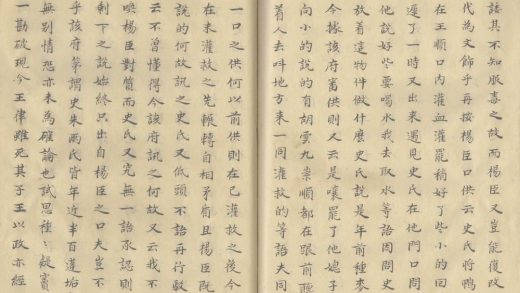 諉其不知服毒之故而楊臣又豈能復改
代為文飾乎再按楊臣口供云史氏將鴨
在王順口內灌血灌罷稍好了些小的回
遲了一時又出來遇見史氏在他門口問
他說好些要喝水我去取水等語因問史
放着這物件做什麼史氏說是年前種來
今據該府審供則又云是嚷罷了他媳子
向小的說的有胡雲九崇順都在跟前聽
着人去叫地方來一同灌救的等語夫同
一口之供何以前供則在已灌救之後今
在未灌救之先輾轉自相矛盾且楊臣既
說的何故訊之史氏又低頭不語再行駁
云不曾懂得今該府訊之何故又云我不
喚楊臣對質而史氏又究無一語承認則
剩下之說始終只出自楊臣之口夫豈不
乎該府第謂史朱兩氏皆年近半百蓬垢
無別情恐亦未為確論也試思種〻疑竇
一勘破現今王律雖死其子王以政亦經